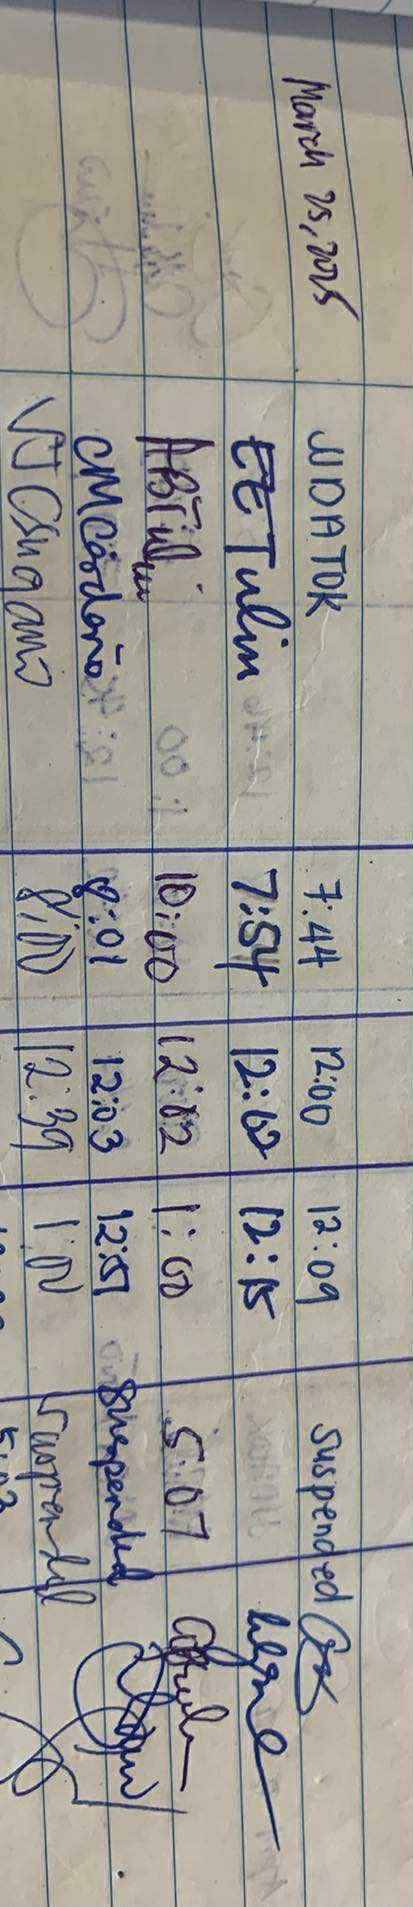 March 25, 2025 NDATOK 7:44 12:00 12:09 Suspended
EETulin 7:54 12:02 12:15
ABTulin 10:00 12:02 1:00 5:07
CMCasdaño 8:01 12:03 12:57 Suspended
8:00 12:39 1:00 Suspended